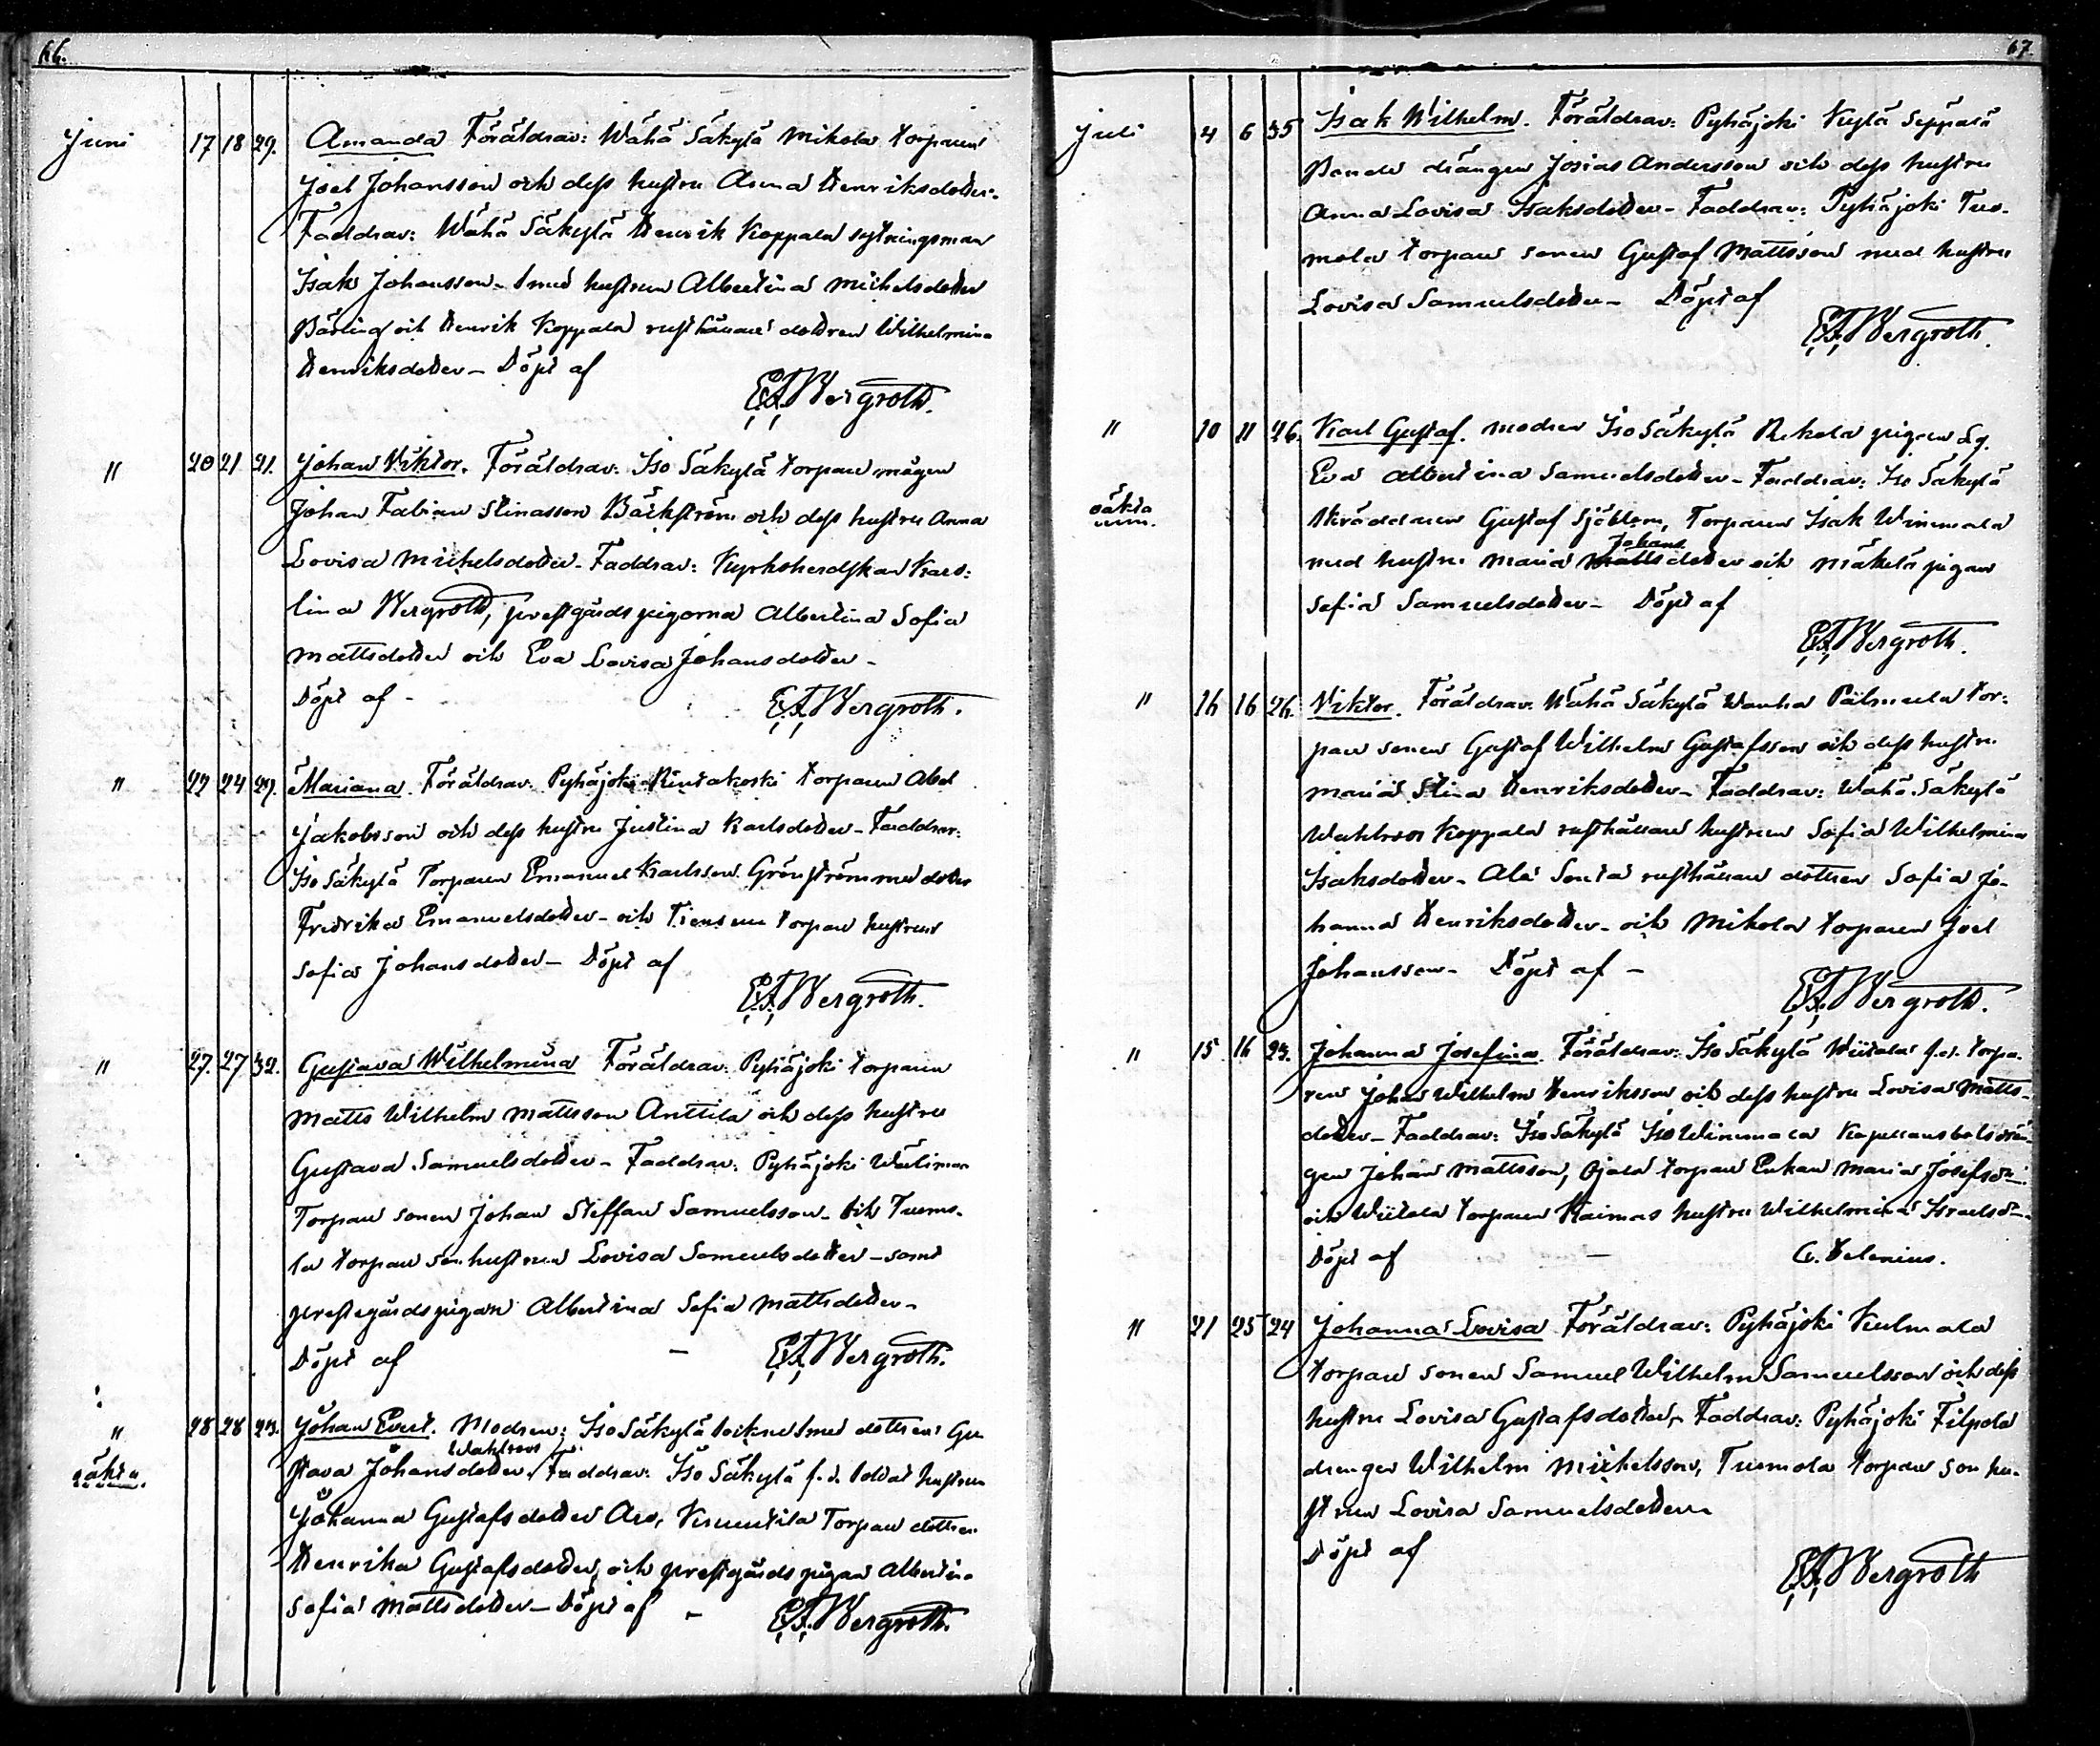 66.
Juni 17 18 29. Amanda Föräldrar: Wähä Säkylä Mikola torparen
Joel Johansson och dess hustru Anna Henriksdotter.
Faddrar: Wähä Säkylä Henrik Koppala sytningsman
Isak Johansson. Smed hustrun Albertina Michelsdotter
och Henrik Koppala rusthållare dottren Wilhelmina
Henriksdotter – Döpt af
E.F. Bergroth.
" 20 21 21. Johan Viktor. Föräldrar: Iso Säkylä torpare mågen
Johan Fabian Stinasson Bäckström och dess hustru Anna
Lovisa Michelsdotter – Faddrar: Kyrkoherdskan Karo-
lina Bergroth, prestgårds pigorna Albertina Sofia
Mattsdotter och Eva Lovisa Johansdotter –
Döpt af –
E.F. Bergroth.
" 22 24 29. Mariana. Föräldrar. Pyhäjoki Rintakoski torparen Abel
Jakobsson och dess hustru Justina Karlsdotter – Faddrar:
Iso Säkylä Torparen Emanuel Karlsson Grönström med dotter
Fredrika Emanuelsdotter – och torpare hustrun
Sofia Johansdotter – Döpt af
E.F. Bergroth.
" 27. 27 32. Gustava Wilhelmina Föräldrar: Pyhäjoki torparen
Matts Wilhelm Mattsson Anttila och dess hustru
Gustava Samuelsdotter – Faddrar: Pyhäjoki
Torpare sonen Johan Steffan Samuelsson – och Tuomo-
la torpare son hustrun Lovisa Samuelsdotter – samt
prestegårdspigan Albertina Sofia Mattsdotter –
Döpt af –
E.F. Bergroth.
" 28 28 23. Johan Evert. Modren: Iso Säkylä sockne smed dottren Gu
Wahlroos
stava Johansdotter. Faddrar: Iso Säkylä f.d. soldat hustrun
oäkta
Johanna Gustafsdotter Aro, Torpare dottren
Henrika Gustafsdotter, och prestgårds pigan Albertina
Sofia Mattsdotter – Döpt af –
E.F. Bergroth.
67
Juli 4 6 35 Isak Wilhelm. Föräldrar: Pyhäjoki Kylä Seppälä
Bonde drängen Josias Andersson och dess hustru
Anna Lovisa Isaksdotter – Faddrar: Pyhäjoki Tuo-
mola torpare sonen Gustaf Mattsson med hustru
Lovisa Samuelsdotter – Döpt af
E.F. Bergroth.
" 10 11 26. Karl Gustaf. Modren Iso Säkylä pigan
Eva Albertina Samuelsdotter – Faddrar: Iso Säkylä
oäkta
Skräddaren Gustaf Sjöblom, Torparen Isak Winnala
Johans
med hustru Maria Mattsdotter och Mäkelä pigan
Sofia Samuelsdotter – Döpt af
E.F. Bergroth.
" 16 16 26. Viktor. Föräldrar. Wähä Säkylä Wanha Pälmula tor-
pare sonen Gustaf Wilhelm Gustafsson och dess hustru
Maria Stina Henriksdotter – Faddrar: Wähä Säkylä
Wahlroos Koppala rusthållare hustrun Sofia Wilhelmina
Isaksdotter – Ala Sonta rusthållare dottren Sofia Jo-
hanna Henriksdotter – och Mikola torparen Joel
Johansson – Döpt af –
E.F. Bergroth.
" 15 16 23. Johanna Josefina. Föräldrar: Iso Säkylä Wiitala f.d. torpa-
ren Johan Wilhelm Henriksson och dess hustru Lovisa Matts-
dotter – Faddrar: Iso Säkylä Iso Winnala Kapellansbols drän-
gen Johan Mattsson, Ojala torpare Enkan Maria Josefsd:r
och Wiitala torparen Kaimas hustru Wilhelmina Israelsd:r
Döpt af –
C. Helenius.
" 21 25 24 Johanna Lovisa Föräldrar: Pyhäjoki Kulmala
torpare sonen Samuel Wilhelm Samuelsson och dess
hustru Lovisa Gustafsdotter – Faddrar: Pyhäjoki Filpola
drengen Wilhelm Michelsson, Tuomola torpare son hu-
strun Lovisa Samuelsdotter
Döpt af
E.F. Bergroth